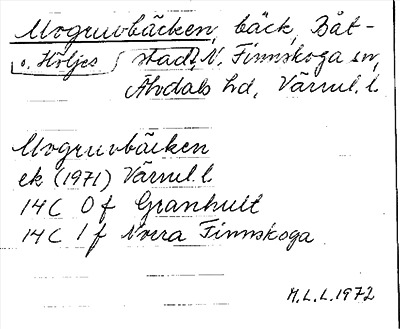 Mogruvbäcken, bäck, Båt-
o. Höljes stad, N. Finnskoga sn,
Älvdals hd, Värml. l.
Mogruvbäcken
ek (1971) Värml. l.
14C 0f Granhult
14C 1f Norra Finnskoga
M.L.L. 1972